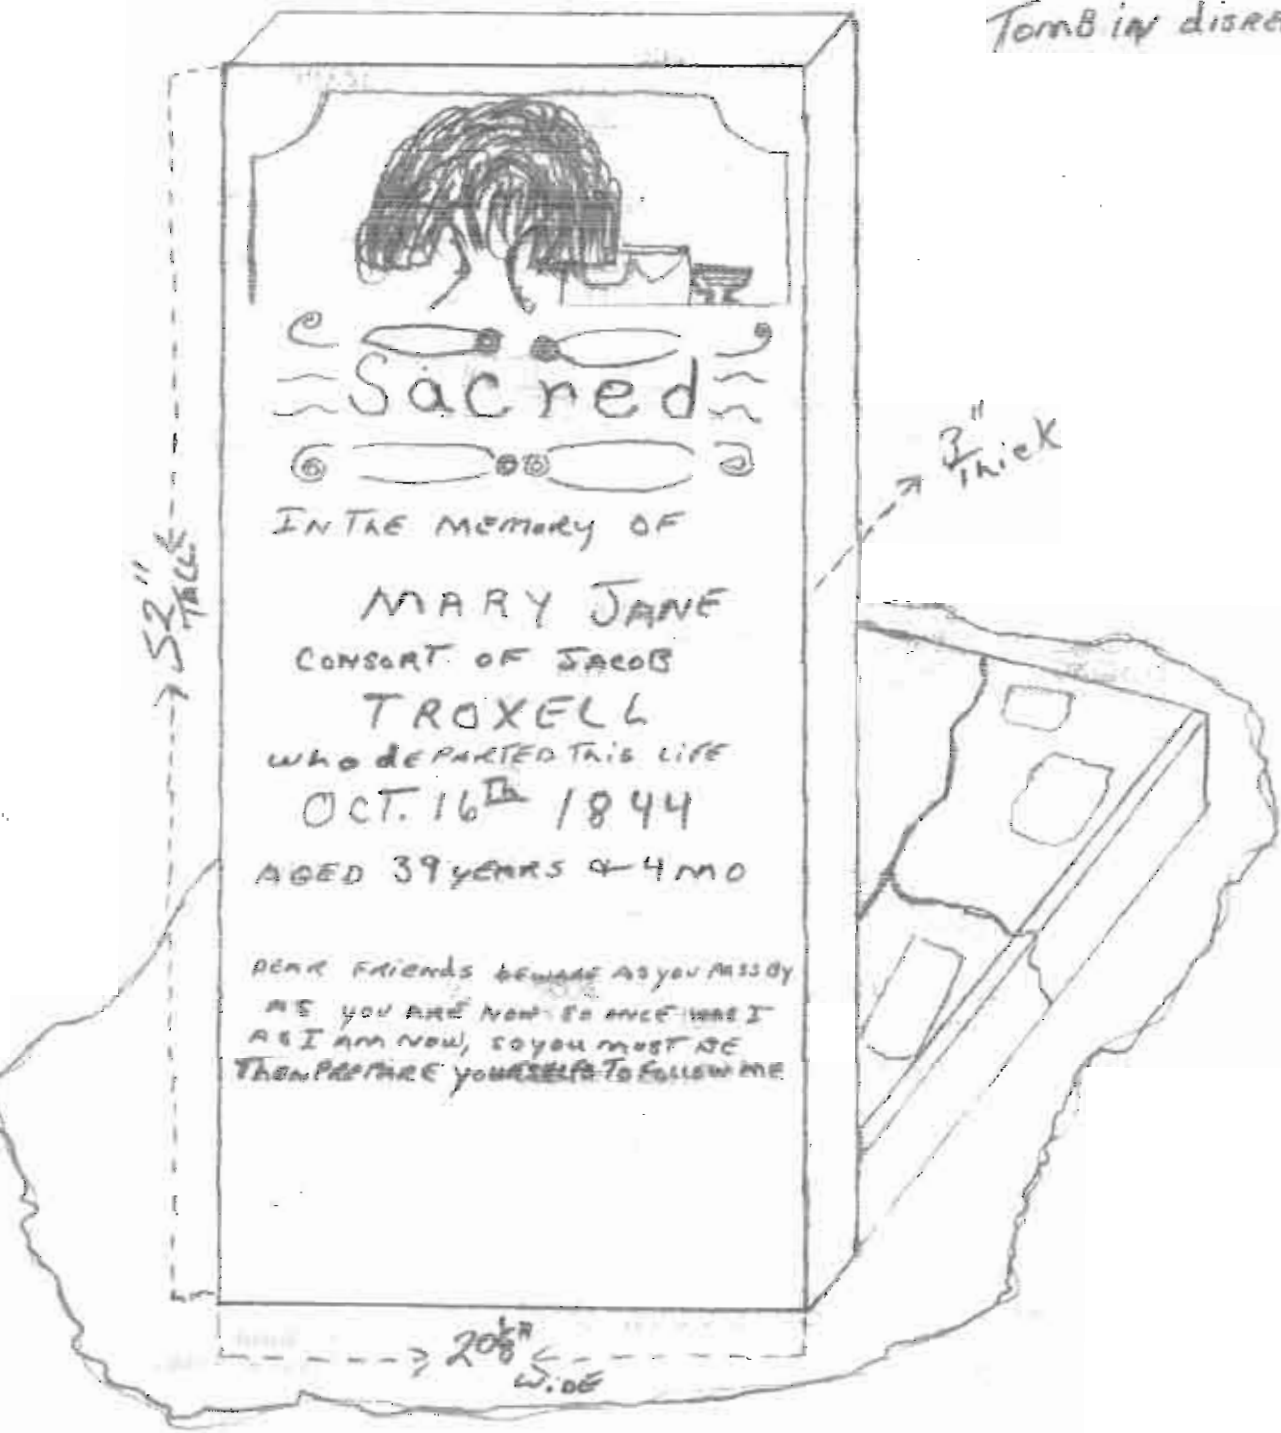 TomB in disre
Sacred
IN THE MEMORY OF
MARY JANE
CONSORT OF JACOB
TROXELL
who dePARTED This LiFE
OCT. 16Th 1844
AGED 39 yEARS & 4 MO
DEAR FRiENds BEWARE AS you PASS By
AS YOU ARE NOW SO ONCE WAS I
AS I AM NOW, SO you MUST BE
THEN PREPARE yoURSELFS TO FOLLOW ME
52"
TALL
3"
Thick
20 5/8"
WiDE